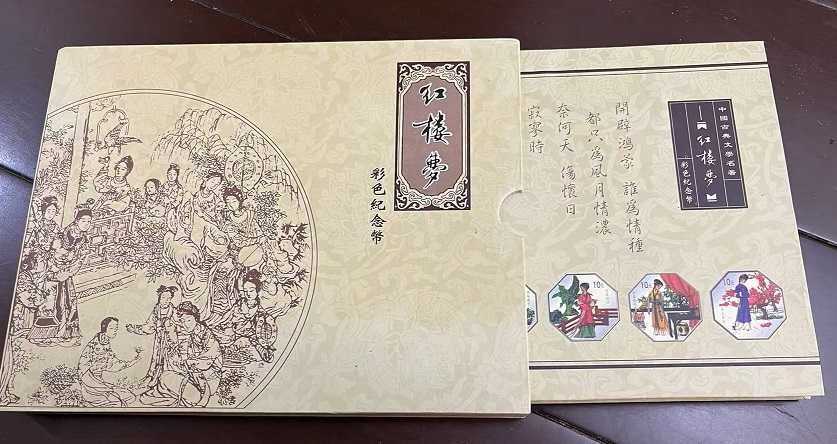 红楼梦
彩色紀念幣
中國古典文學名著
红楼梦
彩色紀念幣
開闢鴻蒙 誰為情種
都只為風月情濃
奈何天 傷懷日
寂寥時
10元
10元
10元